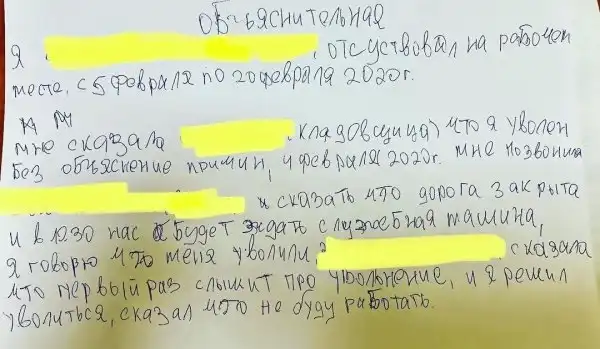 Объяснительная
Я , отсуствовал на рабочем
месте, с 5 февраля по 20 февраля 2020г.
мне сказала кладовщица) что я уволен
без объяснение причин, 4 февраля 2020г. мне позвонила
и сказать что дорога закрыта
и в 19:30 нас будет ждать служебная машина,
я говорю что меня уволили, сказала
что первый раз слышит про увольнение, и я решил
уволиться, сказал что не буду работать.